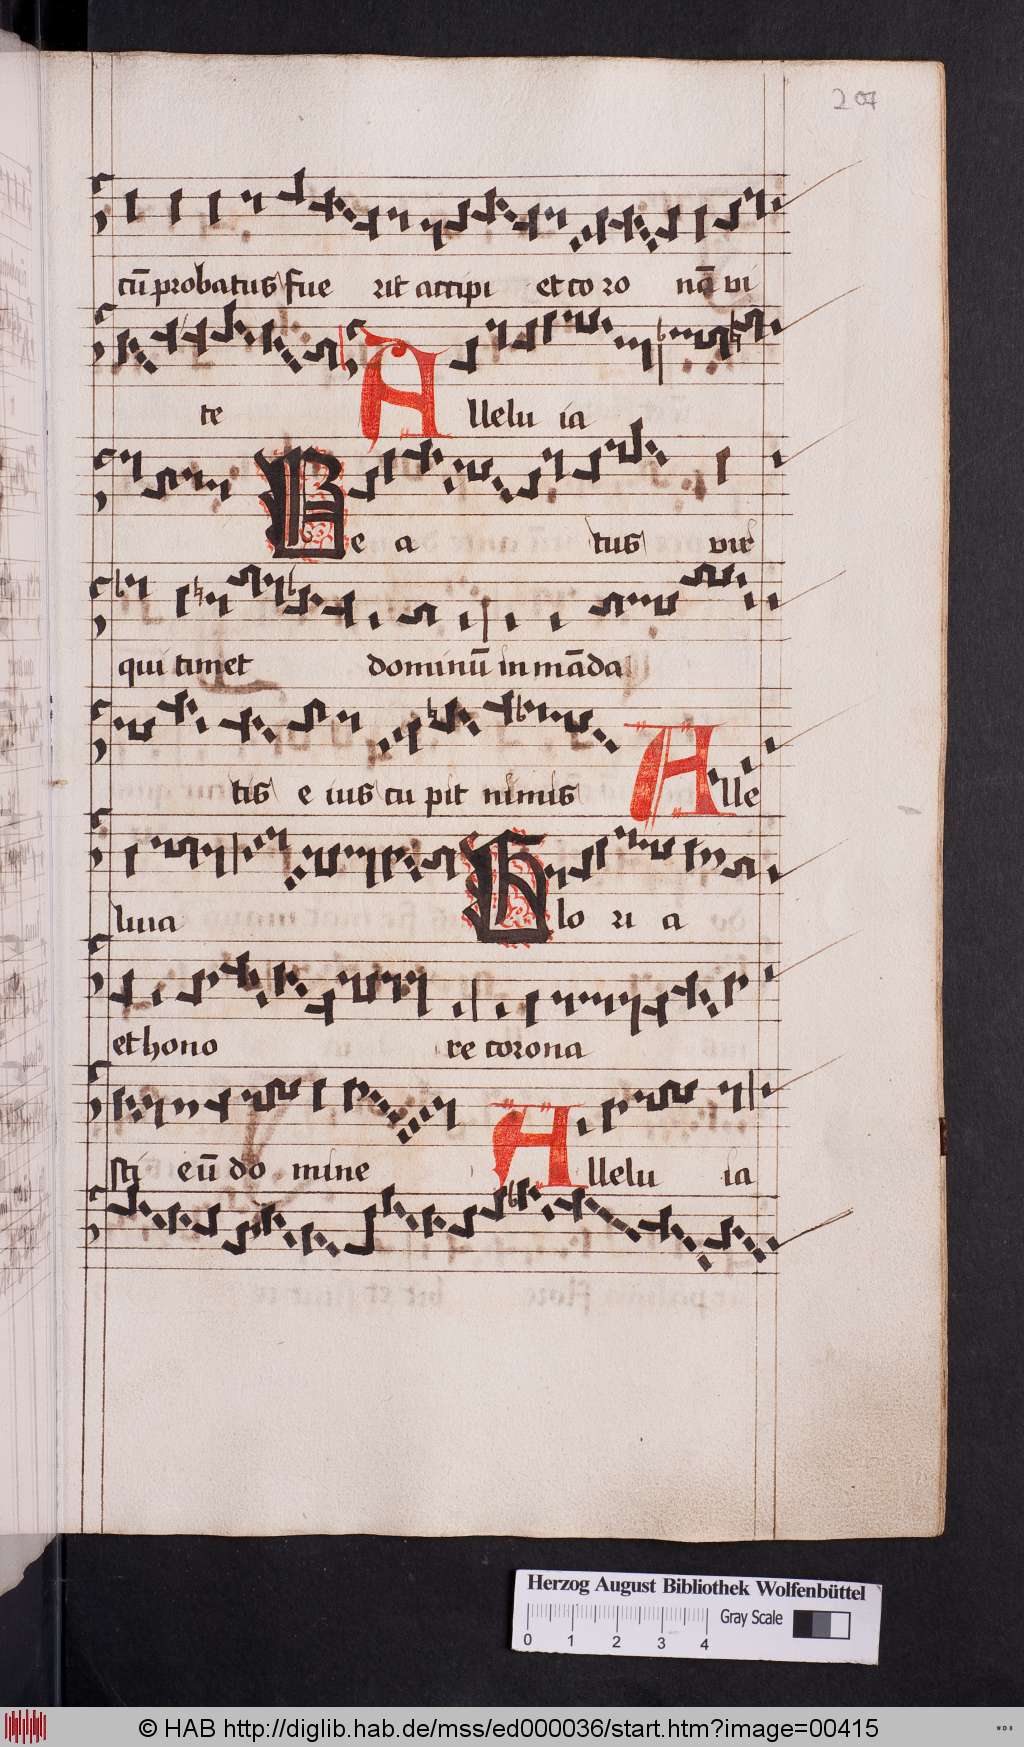 207
cū probatus fue rit accipi et co ro nā vi
te Allelu ia
Be a tus vir
qui timet dominū in māda
tis e ius cu pit nimis Alle
luia Glo ri a
et hono re corona
sti eū do mine Allelu ia
Herzog August Bibliothek Wolfenbüttel
0 1 2 3 4 Gray Scale
© HAB http://diglib.hab.de/mss/ed000036/start.htm?image=00415